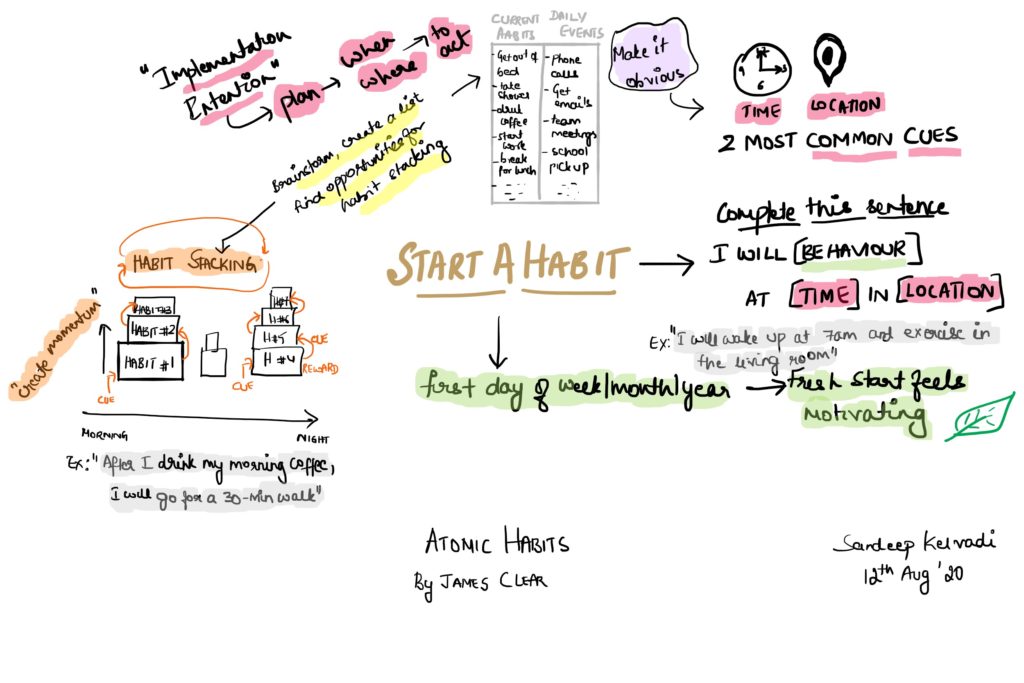 "Implementation
Intention"
plan
when
where
to
act
Brainstorm, create a list
find opportunities for
habit stacking
CURRENT
HABITS
- Get out of
bed
- take
shower
- drink
coffee
- start
work
- break
for lunch
DAILY
EVENTS
- Phone
calls
- Get
emails
- team
meetings
- school
pickup
Make it
obvious
12
9
3
6
TIME
LOCATION
2 MOST COMMON CUES
HABIT STACKING
"Create momentum"
HABIT#3
HABIT#2
HABIT #1
CUE
H#7
H#6
H#5
H #4
CUE
CUE
REWARD
MORNING
NIGHT
Ex:" After I drink my morning coffee,
I will go for a 30-Min walk"
START A HABIT
Complete this sentence
I WILL [BEHAVIOUR]
AT [TIME] IN [LOCATION]
Ex:"I will wake up at 7am and exercise in
the living room"
first day of week/month/year
Fresh start feels
motivating
ATOMIC HABITS
By JAMES CLEAR
Sandeep Kelvadi
12th Aug '20